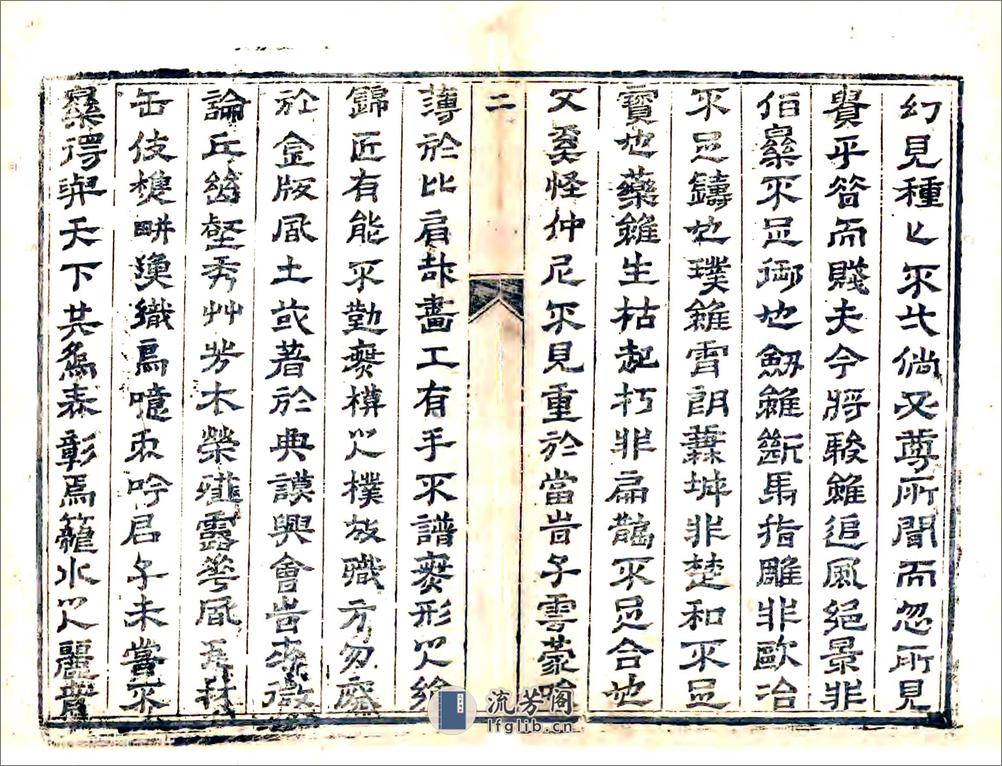 幻見種匕不弌倘又尊所聞而忽所見
貴乎昔而賤夫今將駿雖追風絕景非
伯樂不足御也劍雖斷馬指雕非歐冶
不足鑄也璞雖雪朗城非楚和不足
寶也藥雖生枯起朽非扁鵲不足合也
又奚怪仲尼不見重於當時子雲蒙嗤
二
薄於比肩哉畫工有手不譜無形以繪
錦匠有能不勤無以樸故職方勿廢
於金版風土或著於典謨興會時來徵
論丘壑秀艸芳木榮煙露華風
缶伎織為噫吟君子未嘗不
樂得與天下共為表彰焉籠水以麗
流芳阁
lfglib.cn